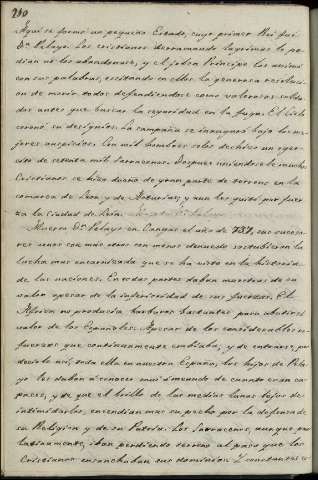 210
Aquí se formó un pequeño Estado, cuyo primer Rei fué
Dn. Pelayo. Los cristianos derramando lagrimas le pe-
dian no los abandonase, y el joben Principe los animó
con sus palabras, escitando en ellos la generosa resolu-
cion de morir todos defendiendose como valerosos solda-
dos antes que buscar la seguridad en la fuga. El Cielo
coronó sus designios. La campaña se inauguró bajo los me-
jores auspicios. Con mil hombres solos deshizo un eger-
cito de setenta mil Sarracenos. Despues uniendosele muchos
Cristianos se hizo dueño de gran parte de terreno en la
comarca de Leon, y de Asturias, y aun les quitó por fuer-
za la Ciudad de Leon.
Muerto Dn. Pelayo en Cangas el año de 737, sus suceso-
res unos con más otros con menos denuedo sostubieron la
lucha mas encarnizada que se ha visto en la historia
de las naciones. En todas partes daban muestras de su
valor apesar de la inferioridad de sus fuerzas. El
Africa no producia barbaros bastantes para abatir el
valor de los Españoles. Apesar de los considerables re-
fuerzos que continuamente embiaba, y de entrarse, por
decirlo así, toda ella en nuestra España, los hijos de Pela-
yo les daban á conocer mui á menudo de cuanto eran ca-
paces, y de que el brillo de las medias lunas lejos de
intimidarlos, encendian mas su pecho por la defensa de
su Religion y de su Patria. Los Sarracenos, aunque pau-
latinamente, iban perdiendo terreno al paso que los
Cristianos ensanchaban sus dominios. Y constantes en